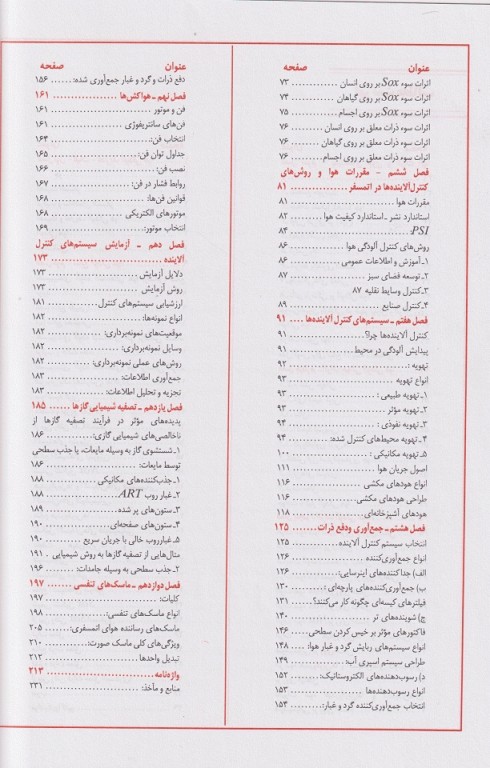 عنوان صفحه
اثرات سوء Sox بر روی انسان ............ ۷۳
اثرات سوء Sox بر روی گیاهان .......... ۷۴
اثرات سوء Sox بر روی اجسام ........... ۷۵
اثرات سوء ذرات معلق بر روی انسان ...... ۷۶
اثرات سوء ذرات معلق بر روی گیاهان ..... ۷۶
اثرات سوء ذرات معلق بر روی اجسام ...... ۷۶
فصل ششم - مقررات هوا و روش‌های
کنترل آلاینده‌ها در اتمسفر .............. ۸۱
مقررات هوا ........................... ۸۱
استاندارد نشر ـ استاندارد کیفیت هوا ..... ۸۲
PSI: ................................. ۸۴
روش‌های کنترل آلودگی هوا ............. ۸۶
۱ـ آموزش و اطلاعات عمومی ............ ۸۶
۲ـ توسعه فضای سبز ................... ۸۷
۳ـ کنترل وسایط نقلیه ۸۷
۴ـ کنترل صنایع ...................... ۸۹
فصل هفتم ـ سیستم‌های کنترل آلاینده‌ها ... ۹۱
کنترل آلاینده‌ها چرا؟ .................. ۹۱
پیدایش آلودگی در محیط ............... ۹۱
تهویه : .............................. ۹۲
انواع تهویه .......................... ۹۳
۱ـ تهویه طبیعی : ..................... ۹۳
۲ـ تهویه مؤثر ........................ ۹۳
۳ـ تهویه نفوذی : ..................... ۹۴
۴ـ تهویه محیط‌های کنترل شده: .......... ۹۴
۵ـ تهویه مکانیکی : ................... ۱۰۰
اصول جریان هوا ...................... ۱۱۱
انواع هودهای مکشی .................. ۱۱۶
طراحی هودهای مکشی ................. ۱۱۶
هودهای آشپزخانه‌ای ................... ۱۱۸
فصل هشتم ـ جمع‌آوری ودفع ذرات ...... ۱۲۵
انتخاب سیستم کنترل آلاینده ........... ۱۲۵
انواع جمع‌آوری‌کننده .................. ۱۲۶
الف) جداکننده‌های اینرسایی: ........... ۱۲۶
ب) جمع‌آوری‌کننده‌های پارچه‌ای : ....... ۱۳۰
فیلترهای کیسه‌ای چگونه کار می‌کنند؟ ... ۱۳۱
ج) شوینده‌های تر ..................... ۱۴۰
فاکتورهای مؤثر بر خیس کردن سطحی .. ۱۴۶
انواع سیستم‌های ربایش گرد و غبار هوا: .. ۱۴۸
طراحی سیستم اسپری آب: ............. ۱۴۹
د) رسوب‌دهنده‌های الکتروستاتیک: ....... ۱۵۲
انواع رسوب‌دهنده‌ها ................... ۱۵۳
انتخاب جمع‌آوری‌کننده گرد و غبار: ...... ۱۵۴
عنوان صفحه
دفع ذرات و گرد و غبار جمع‌آوری شده: ...... ۱۵۶
فصل نهم ـ هواکش‌ها ................... ۱۶۱
فن و موتور ........................... ۱۶۱
فن‌های سانتریفوژی .................... ۱۶۱
انتخاب فن: ........................... ۱۶۴
جداول توان فن: ....................... ۱۶۵
نصب فن: ............................ ۱۶۶
روابط فشار در فن: .................... ۱۶۷
قوانین فن‌ها: ......................... ۱۶۸
موتورهای الکتریکی ................... ۱۶۸
انتخاب موتور: ........................ ۱۶۹
فصل دهم ـ آزمایش سیستم‌های کنترل
آلاینده .............................. ۱۷۳
دلایل آزمایش ........................ ۱۷۳
روش آزمایش ........................ ۱۷۳
ارزشیابی سیستم‌های کنترل ............ ۱۸۱
انواع نمونه‌ها: ........................ ۱۸۲
موقعیت‌های نمونه‌برداری: .............. ۱۸۲
وسایل نمونه‌برداری: ................... ۱۸۲
روش‌های عملی نمونه‌برداری: ........... ۱۸۲
جمع‌آوری اطلاعات: ................... ۱۸۳
تجزیه و تحلیل اطلاعات: .............. ۱۸۳
فصل یازدهم ـ تصفیه شیمیایی گازها ..... ۱۸۵
پدیده‌های مؤثر در فرآیند تصفیه گازها از
ناخالصی‌های شیمیایی گازی: ........... ۱۸۶
۱ـ شستشوی گاز به وسیله مایعات، یا جذب سطحی
توسط مایعات: ....................... ۱۸۶
۱ـ جذب‌کننده‌های مکانیکی ............. ۱۸۸
۲ـ غبار روب ART .................... ۱۸۸
۳ـ ستون‌های پر شده .................. ۱۸۹
۴ـ ستون‌های صفحه‌ای ................. ۱۹۰
۵ـ غبارروب خالی با جریان سریع ....... ۱۹۰
مثال‌هایی از تصفیه گازها به روش شیمیایی . ۱۹۱
۲ـ جذب سطحی به وسیله جامدات: ....... ۱۹۶
فصل دوازدهم ـ ماسک‌های تنفسی ....... ۱۹۷
کلیات: ............................. ۱۹۷
انواع ماسک‌های تنفسی: ................ ۱۹۸
ماسک‌های رساننده هوای اتمسفری: ...... ۲۰۵
ویژگی‌های کلی ماسک صورت: .......... ۲۱۰
تبدیل واحدها ........................ ۲۱۲
واژه‌نامه ............................. ۲۱۳
منابع و مآخذ: ........................ ۲۳۱